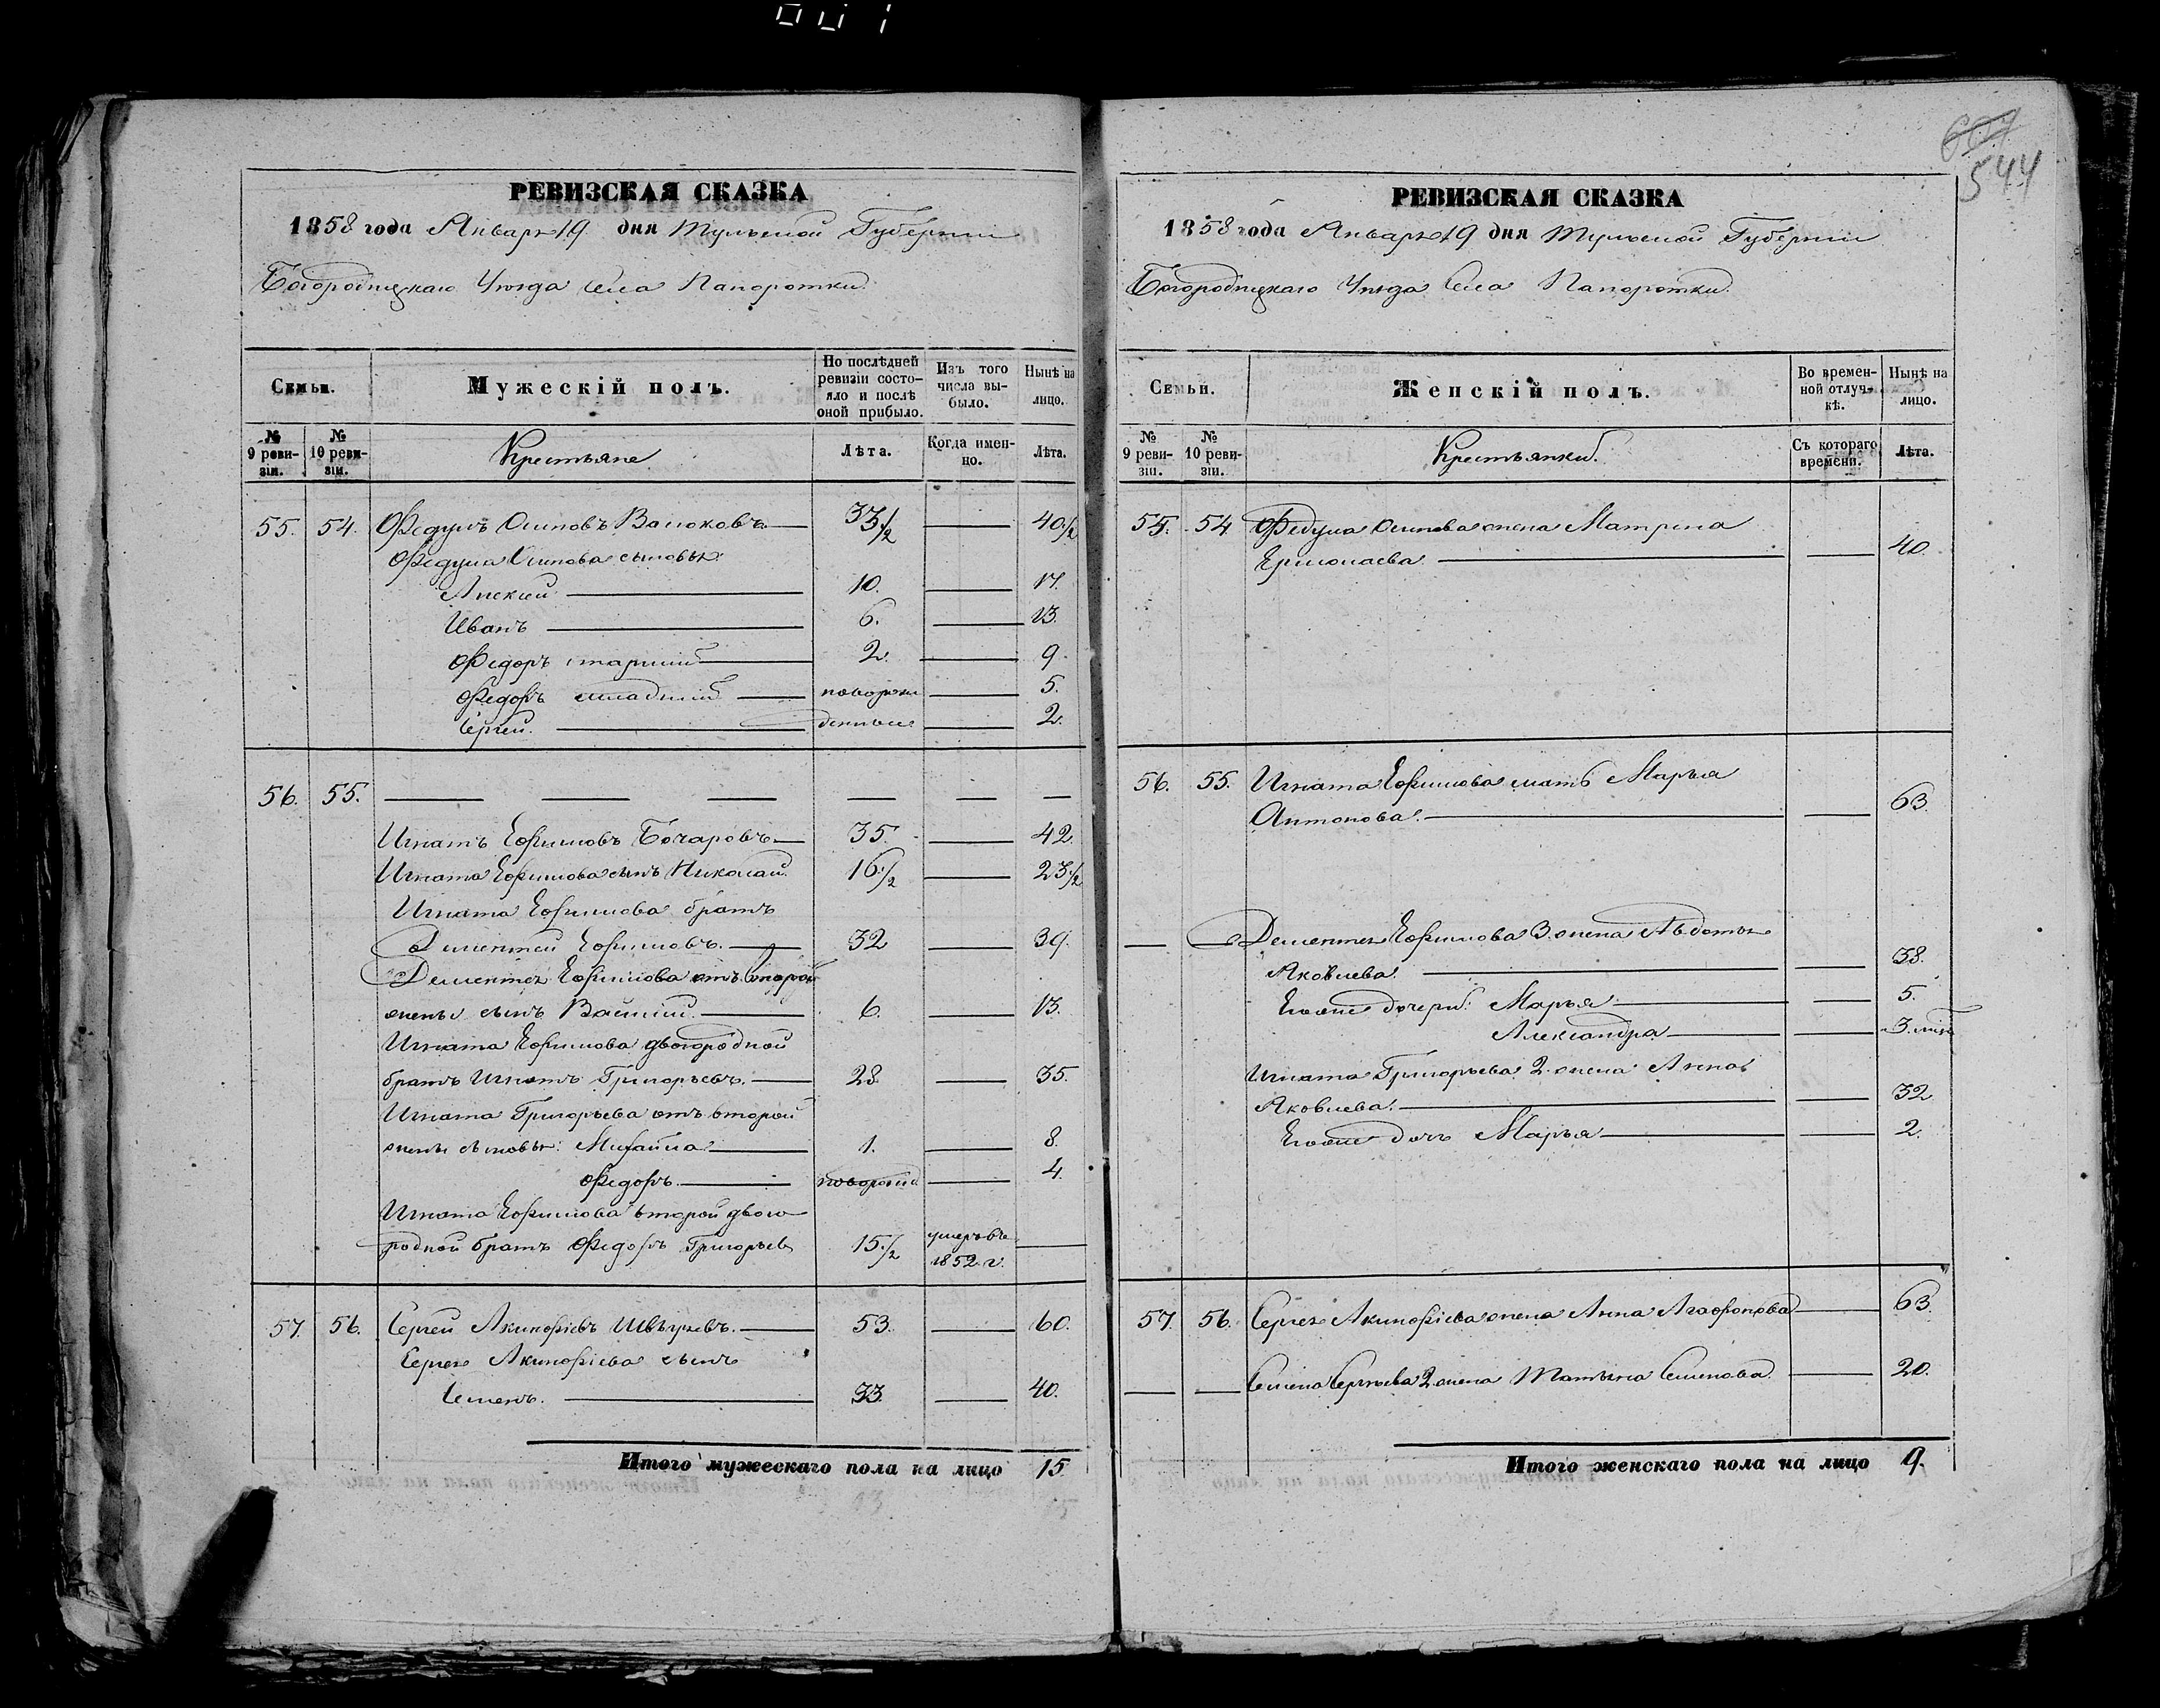 607
544
РЕВИЗСКАЯ СКАЗКА
1858 года Января 19 дня Тульской Губернии
Богородицкаго Уѣзда Села Папоротки.
Семьи.
Мужескій полъ.
По послѣдней ревизіи состояло и послѣ оной прибыло.
Изъ того числа выбыло.
Нынѣ на лицо.
№ 9 ревизіи.
№ 10 ревизіи.
Крестьяне
Лѣта.
Когда именно.
Лѣта.
55. 54. Ѳедулъ Осиповъ 33 1/2 40 1/2
Ѳедула Осипова сыновья:
10. 17.
Иванъ 6. 13.
Ѳедоръ старшій 2. 9.
Ѳедоръ младшій новорож 5.
Сергей. денные 2.
56. 55.
Игнатъ Ефимовъ Бочаровъ 35. 42.
Игната Ефимова сынъ Николай. 16 1/2 23 1/2
Игната Ефимова братъ
Дементей Ефимовъ. 32 39.
Дементея Ефимова отъ второй
жены сынъ Василій. 6. 13.
Игната Ефимова двоюродной
братъ Игнатъ Григорьевъ. 28 35.
Игната Григорьева отъ второй
жены сыновья: Михайла 1. 8.
Ѳедоръ. новорож 4.
Игната Ефимова второй двою
родной братъ Ѳедоръ Григорьев 15 1/2 умеръ въ 1852 г.
57. 56. Сергей Акинфіевъ 53. 60.
Сергея Акинфіева сынъ
Семенъ. 33 40.
Итого мужескаго пола на лицо 15
РЕВИЗСКАЯ СКАЗКА
1858 года Января 19 дня Тульской Губернии
Богородицкаго Уѣзда Села Папоротки.
Семьи.
Женскій полъ.
Во временной отлучкѣ.
Нынѣ на лицо.
№ 9 ревизіи.
№ 10 ревизіи.
Крестьянки.
Съ котораго времени.
Лѣта.
55. 54. Ѳедула Осипова жена Матрена
Ермолаева 40.
56. 55. Игната Ефимова мать Марья
Антонова. 63.
Дементея Ефимова 3. жена Авдотья
Яковлева. 38.
Его же дочери: Марья 5.
Александра 3.
Игната Григорьева 2. жена Анна
Яковлева. 32
Его же дочь Марья 2.
57. 56. Сергея Акинфіева жена Анна Агафонова 63.
Семена Сергѣева 2. жена Татьяна Семенова. 20.
Итого женскаго пола на лицо 9.